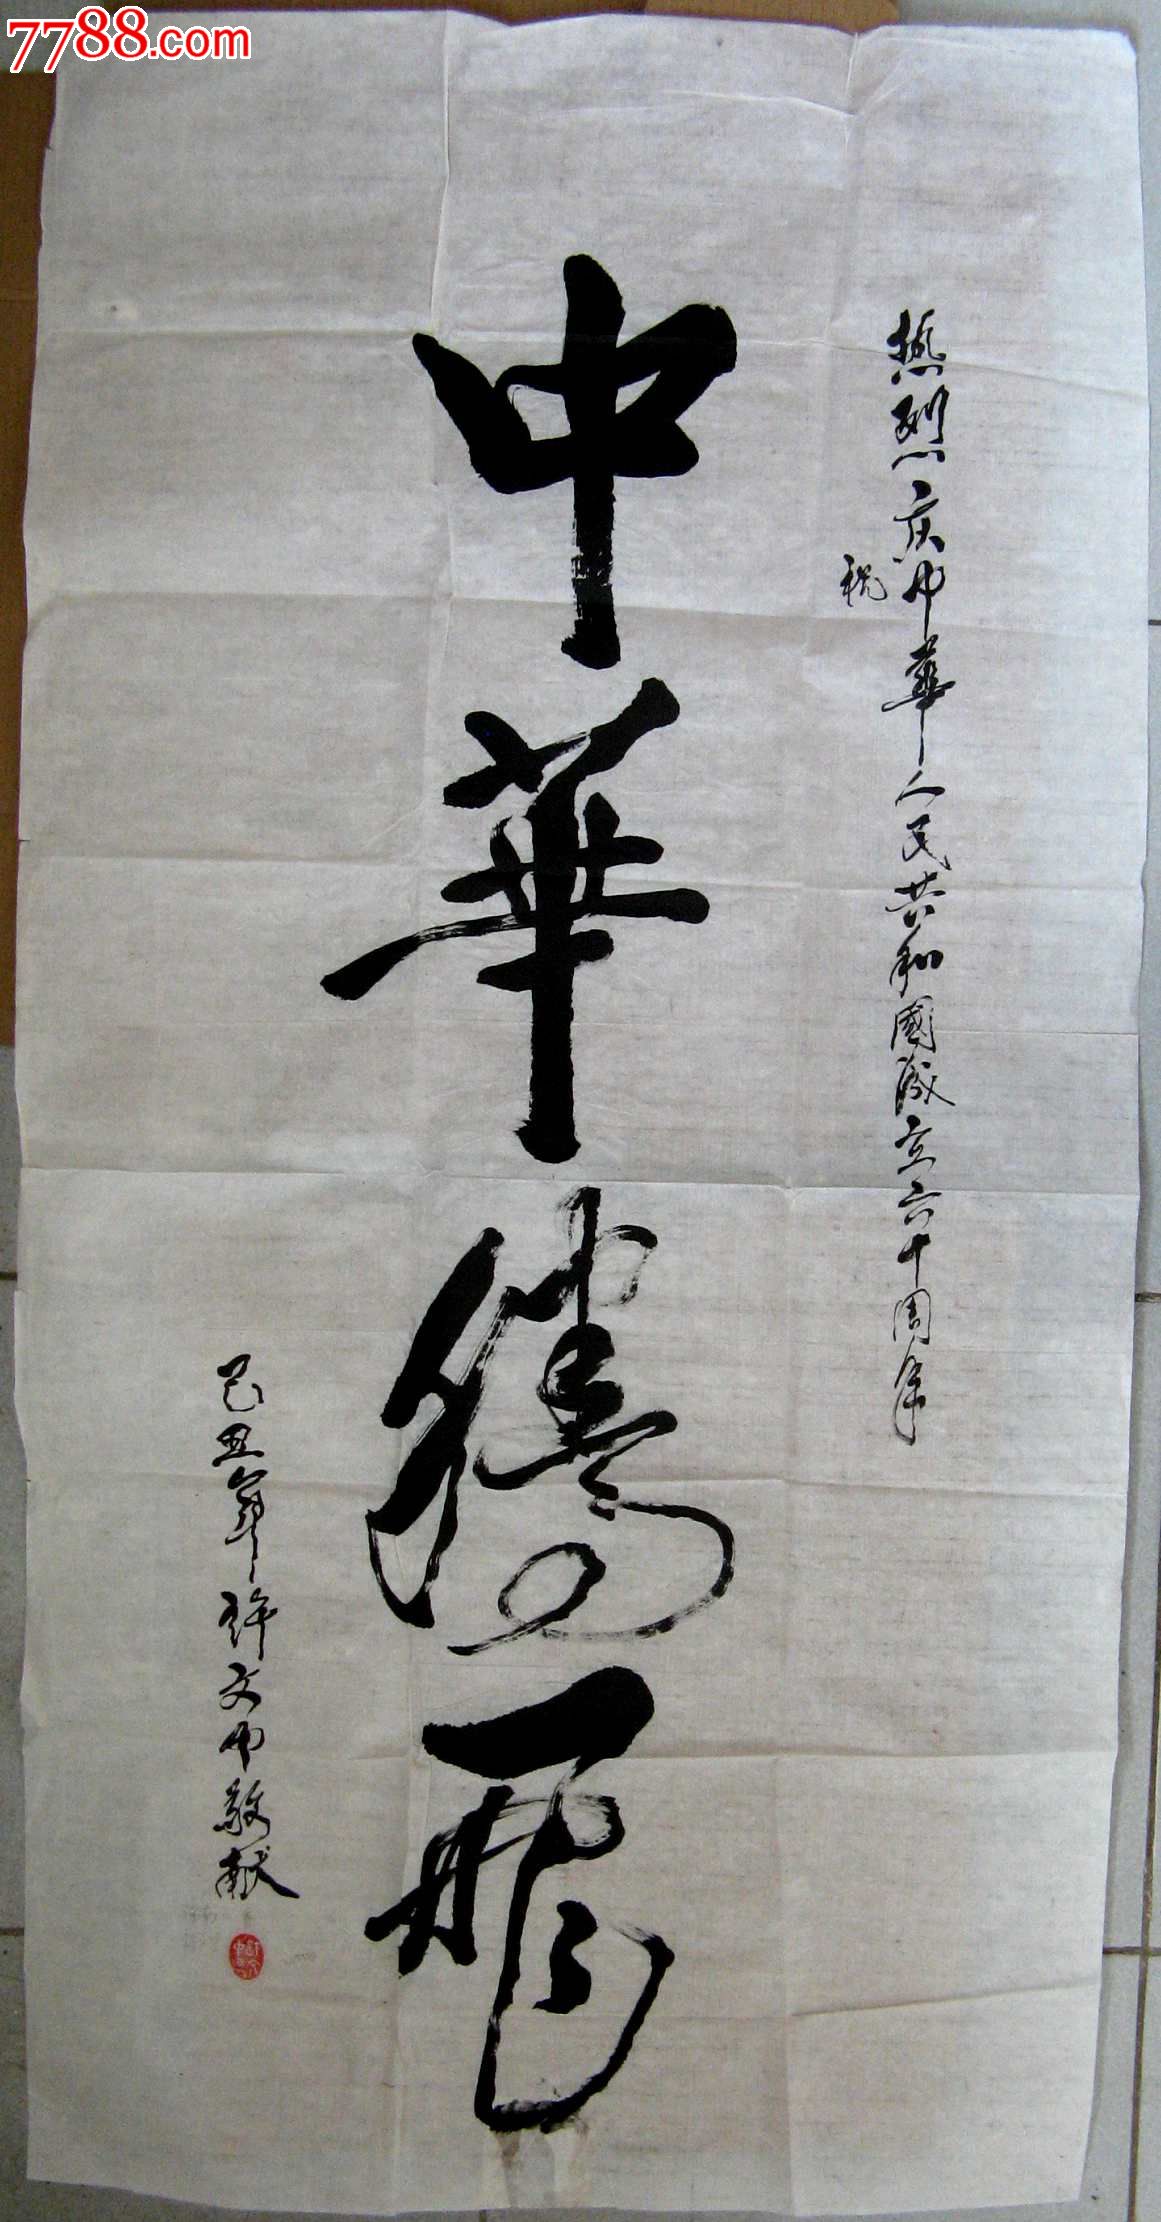 7788.com
热烈庆中华人民共和國成立六十周年
祝
中華腾飛
己丑年许文中敬献